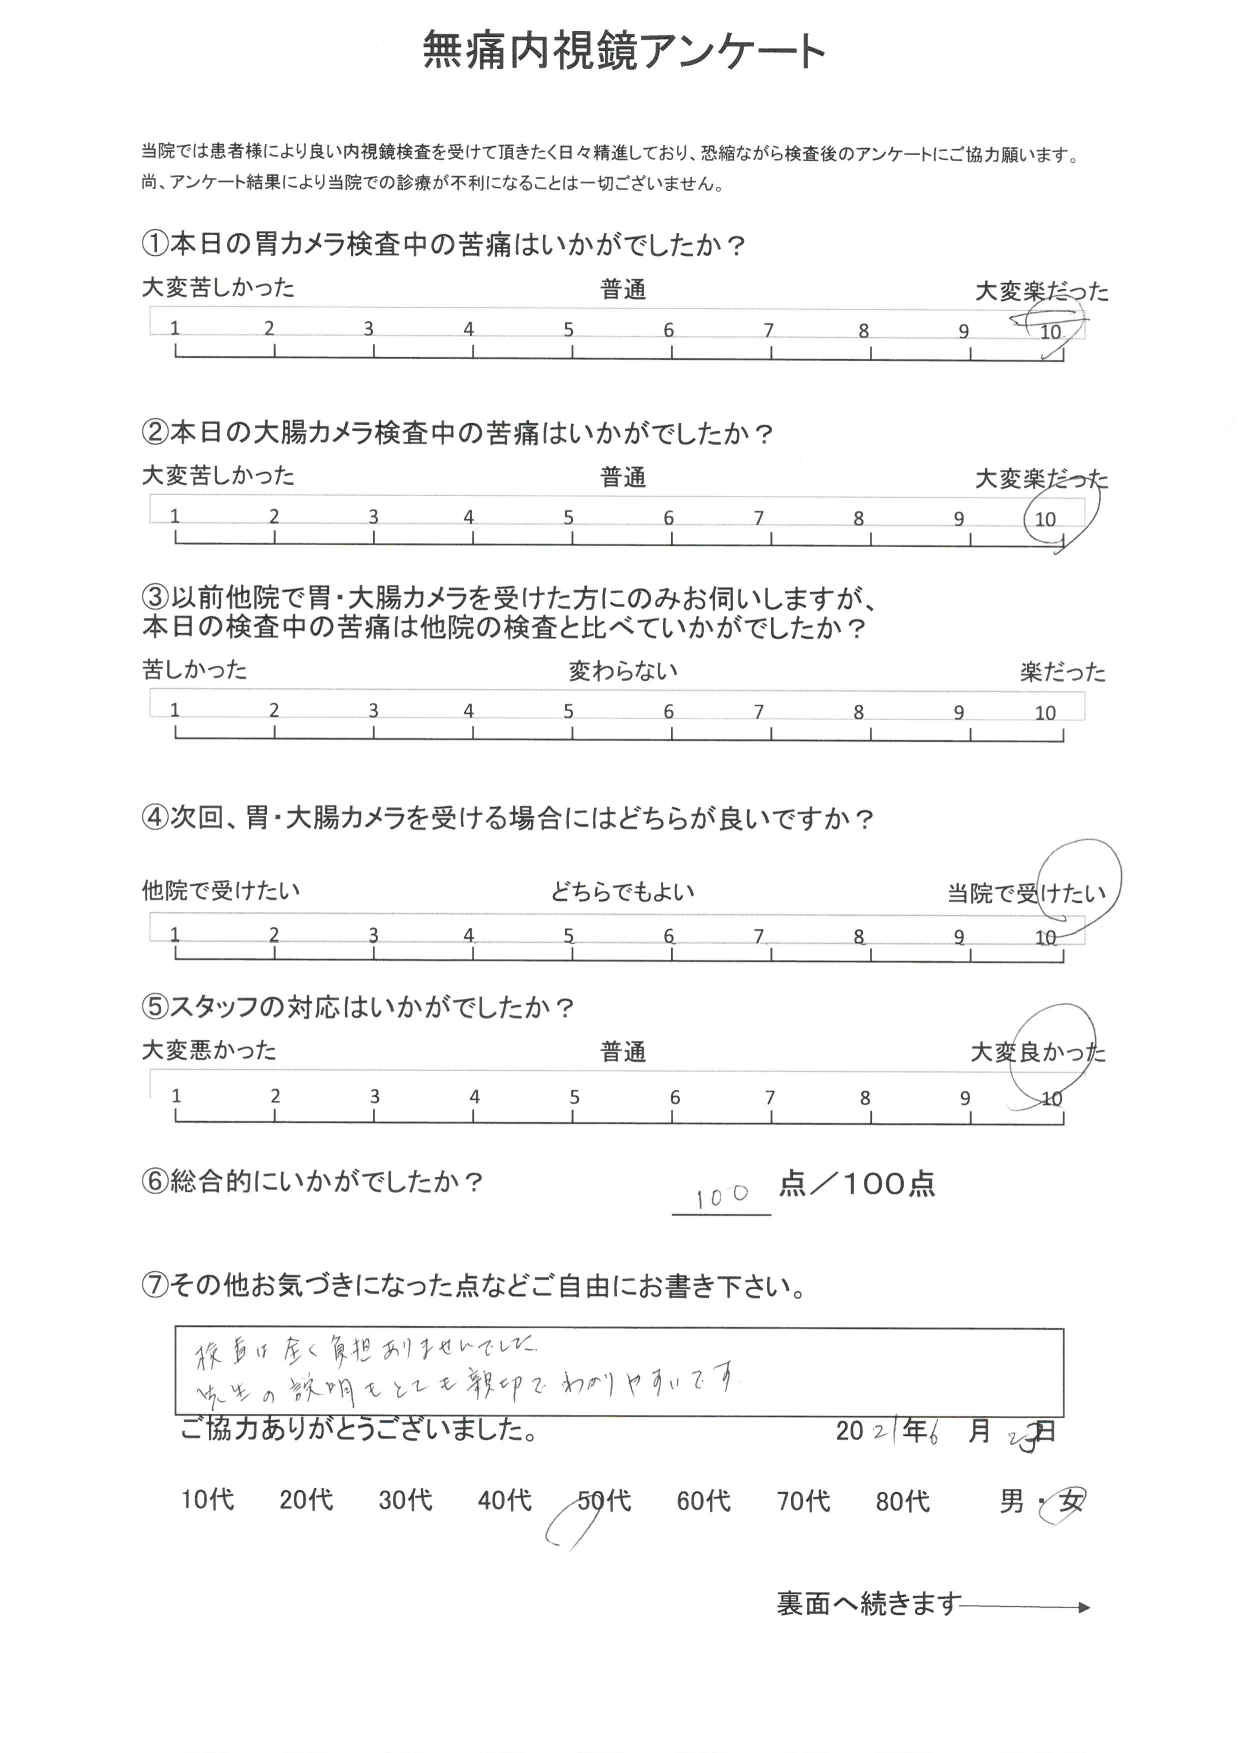 無痛内視鏡アンケート
当院では患者様により良い内視鏡検査を受けて頂きたく日々精進しており、恐縮ながら検査後のアンケートにご協力願います。
尚、アンケート結果により当院での診療が不利になることは一切ございません。
①本日の胃カメラ検査中の苦痛はいかがでしたか？
大変苦しかった 普通 大変楽だった
1 2 3 4 5 6 7 8 9 10
②本日の大腸カメラ検査中の苦痛はいかがでしたか？
大変苦しかった 普通 大変楽だった
1 2 3 4 5 6 7 8 9 10
③以前他院で胃・大腸カメラを受けた方にのみお伺いしますが、
本日の検査中の苦痛は他院の検査と比べていかがでしたか？
苦しかった 変わらない 楽だった
1 2 3 4 5 6 7 8 9 10
④次回、胃・大腸カメラを受ける場合にはどちらが良いですか？
他院で受けたい どちらでもよい 当院で受けたい
1 2 3 4 5 6 7 8 9 10
⑤スタッフの対応はいかがでしたか？
大変悪かった 普通 大変良かった
1 2 3 4 5 6 7 8 9 10
⑥総合的にいかがでしたか？ 100 点／100点
⑦その他お気づきになった点などご自由にお書き下さい。
検査は全く負担ありませんでした。
先生の説明もとても親切でわかりやすいです。
ご協力ありがとうございました。 2021年6月23日
10代 20代 30代 40代 50代 60代 70代 80代 男・女
裏面へ続きます